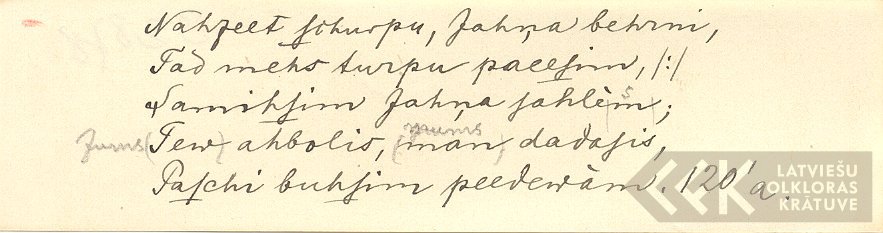 Nahzeet schurpu, Jahņa behrni,
Tad mehs turpu paeesim, /:/
Samihsim Jahņa sahlēm(s);
mums
Jums (Tew) ahbolis, (man) dadasis,
Paschi buhsim peedewām. 120'a.
LATVIEŠU
FOLKLORAS
KRĀTUVE